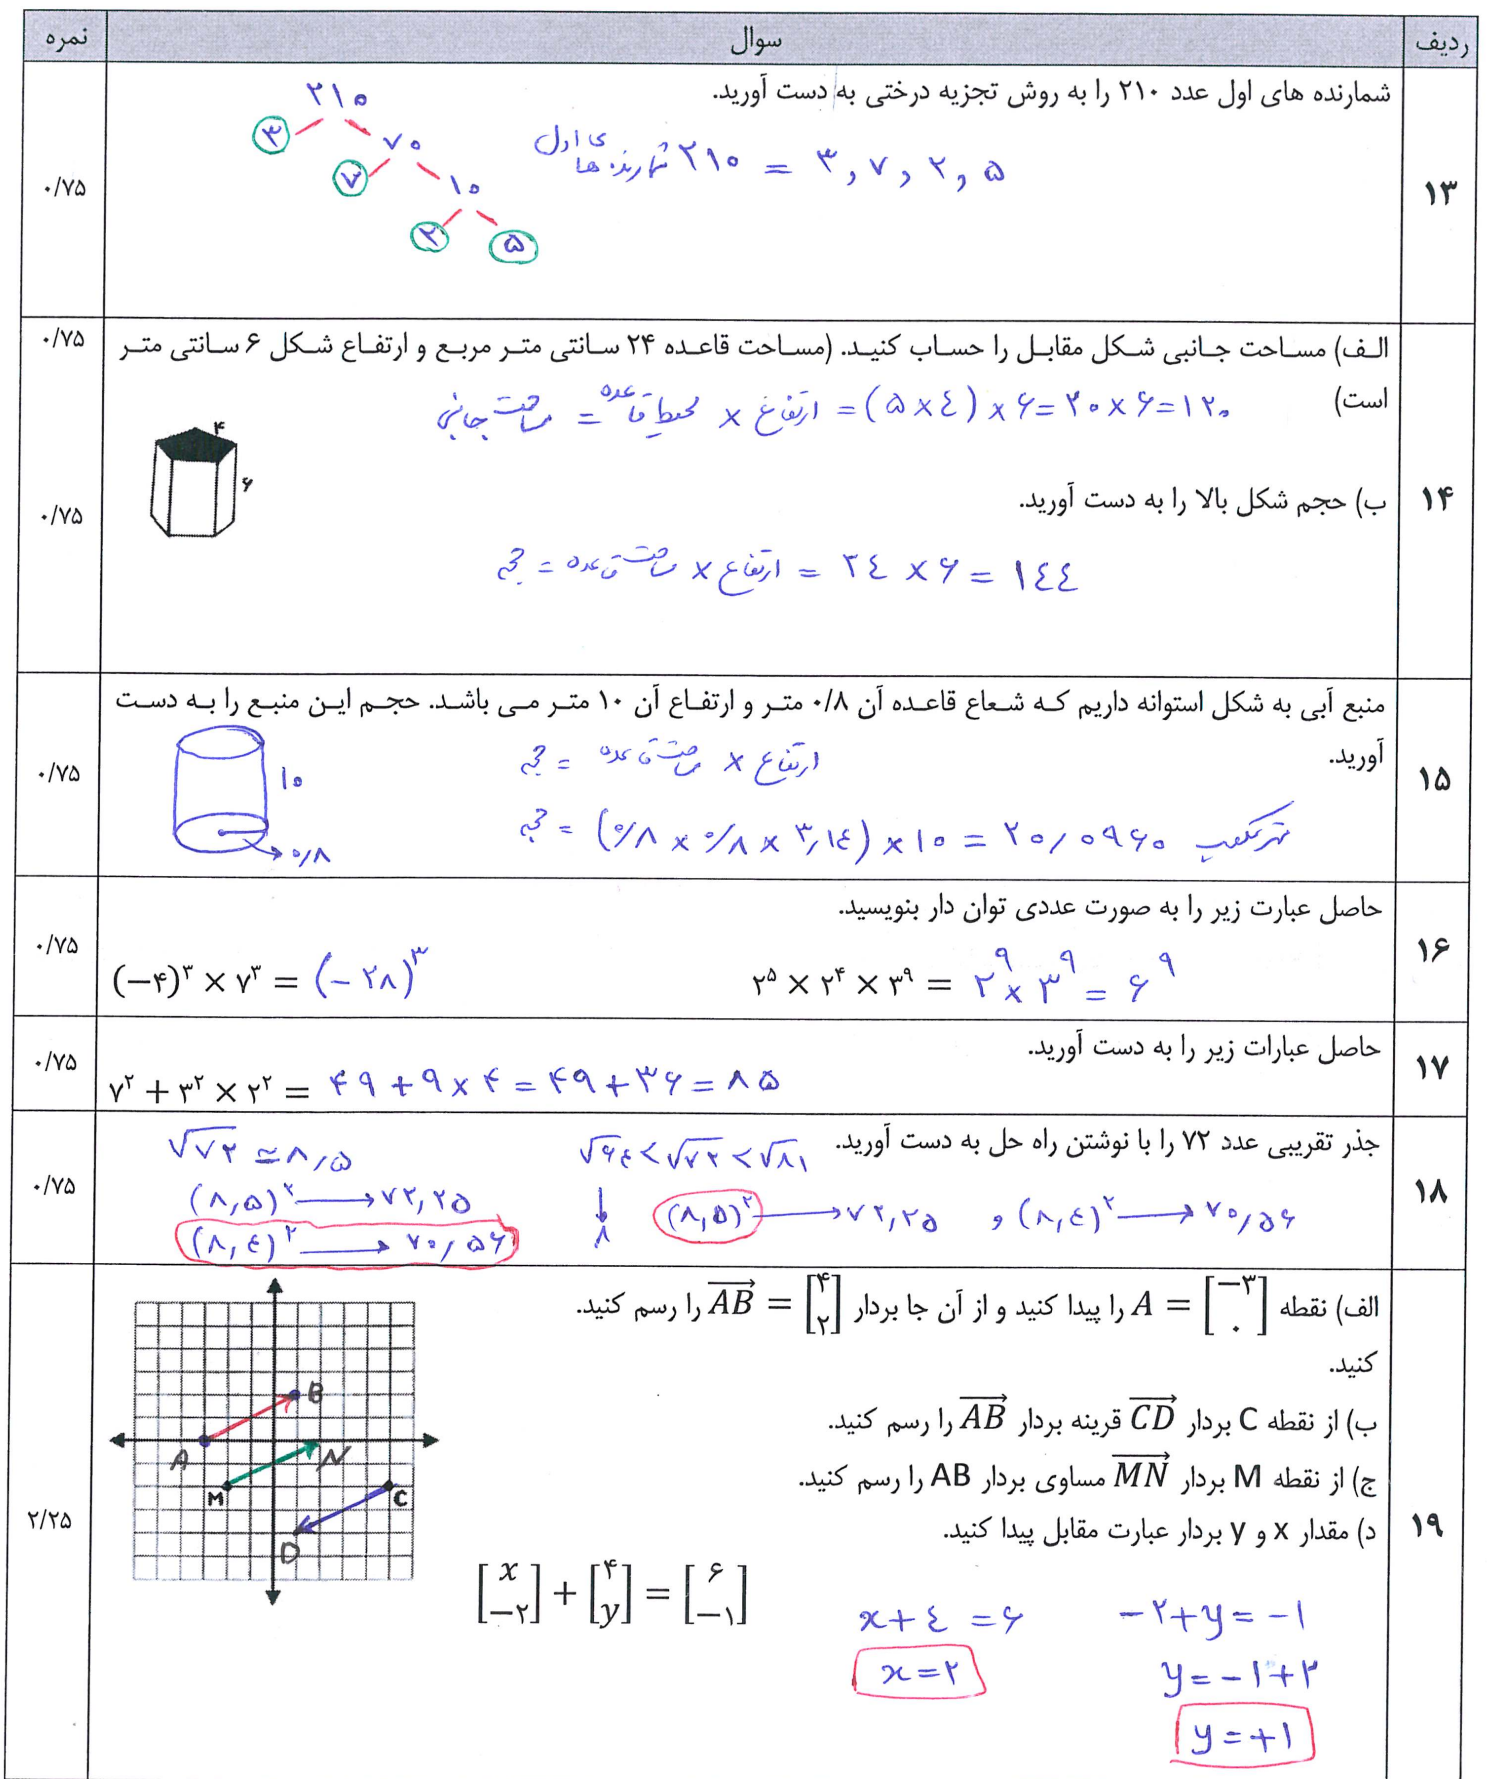 ردیف سوال نمره
۱۳
شمارنده های اول عدد ۲۱۰ را به روش تجزیه درختی به دست آورید.
۰/۷۵
۲۱۰
۳ ۷۰
۷ ۱۰
۲ ۵
شمارنده های اول ۲۱۰ = ۳ , ۷ , ۲ , ۵
۱۴
الف) مساحت جانبی شکل مقابل را حساب کنید. (مساحت قاعده ۲۴ سانتی متر مربع و ارتفاع شکل ۶ سانتی متر
است)
۰/۷۵
مساحت جانبی = محیط قاعده × ارتفاع = (۵×٤) × ۶ = ۲۰×۶ = ۱۲۰
۴
۶
ب) حجم شکل بالا را به دست آورید.
۰/۷۵
حجم = مساحت قاعده × ارتفاع = ۲٤ × ۶ = ۱٤٤
۱۵
منبع آبی به شکل استوانه داریم که شعاع قاعده آن ۰/۸ متر و ارتفاع آن ۱۰ متر می باشد. حجم این منبع را به دست
آورید.
۰/۷۵
حجم = مساحت قاعده × ارتفاع
حجم = (۰/۸ × ۰/۸ × ۳/۱٤) × ۱۰ = ۲۰/۰۹۶۰ متر مکعب
۱۰
۰/۸
۱۶
حاصل عبارت زیر را به صورت عددی توان دار بنویسید.
۰/۷۵
۲⁵ × ۲⁴ × ۳⁹ = ۲⁹ × ۳⁹ = ۶⁹
(−۴)³ × ۷³ = (−۲۸)³
۱۷
حاصل عبارات زیر را به دست آورید.
۰/۷۵
۷² + ۳² × ۲² = ۴۹ + ۹ × ۴ = ۴۹ + ۳۶ = ۸۵
۱۸
جذر تقریبی عدد ۷۲ را با نوشتن راه حل به دست آورید.
۰/۷۵
√۶٤ < √۷۲ < √۸۱
√۷۲ ≃ ۸/۵
↓
۸
(۸/۵)² → ۷۲/۲۵ و (۸/٤)² → ۷۰/۵۶
(۸/۵)² → ۷۲/۲۵
(۸/٤)² → ۷۰/۵۶
۱۹
الف) نقطه A = [−۳ ۰] را پیدا کنید و از آن جا بردار AB = [۴ ۲] را رسم کنید.
کنید.
ب) از نقطه C بردار CD قرینه بردار AB را رسم کنید.
ج) از نقطه M بردار MN مساوی بردار AB را رسم کنید.
د) مقدار x و y بردار عبارت مقابل پیدا کنید.
۲/۲۵
[x −۲] + [۴ y] = [۶ −۱]
x + ٤ = ۶
x = ۲
−۲ + y = −۱
y = −۱ + ۲
y = +۱
B
A
N
M
C
D